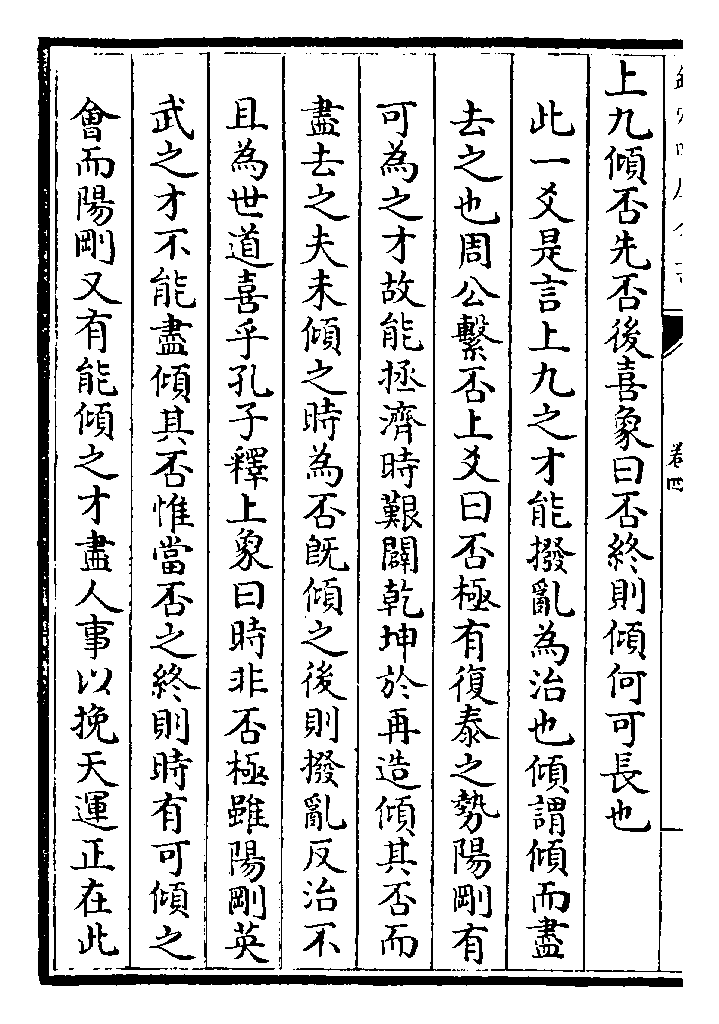 上九傾否先否後喜象曰否終則傾何可長也
此一爻是言上九之才能撥亂為治也傾謂傾而盡
去之也周公繫否上爻曰否極有復泰之勢陽剛有
可為之才故能拯濟時艱闢乾坤於再造傾其否而
盡去之夫未傾之時為否既傾之後則撥亂反治不
且為世道喜乎孔子釋上象曰時非否極雖陽剛英
武之才不能盡傾其否惟當否之終則時有可傾之
會而陽剛又有能傾之才盡人事以挽天運正在此
卷四